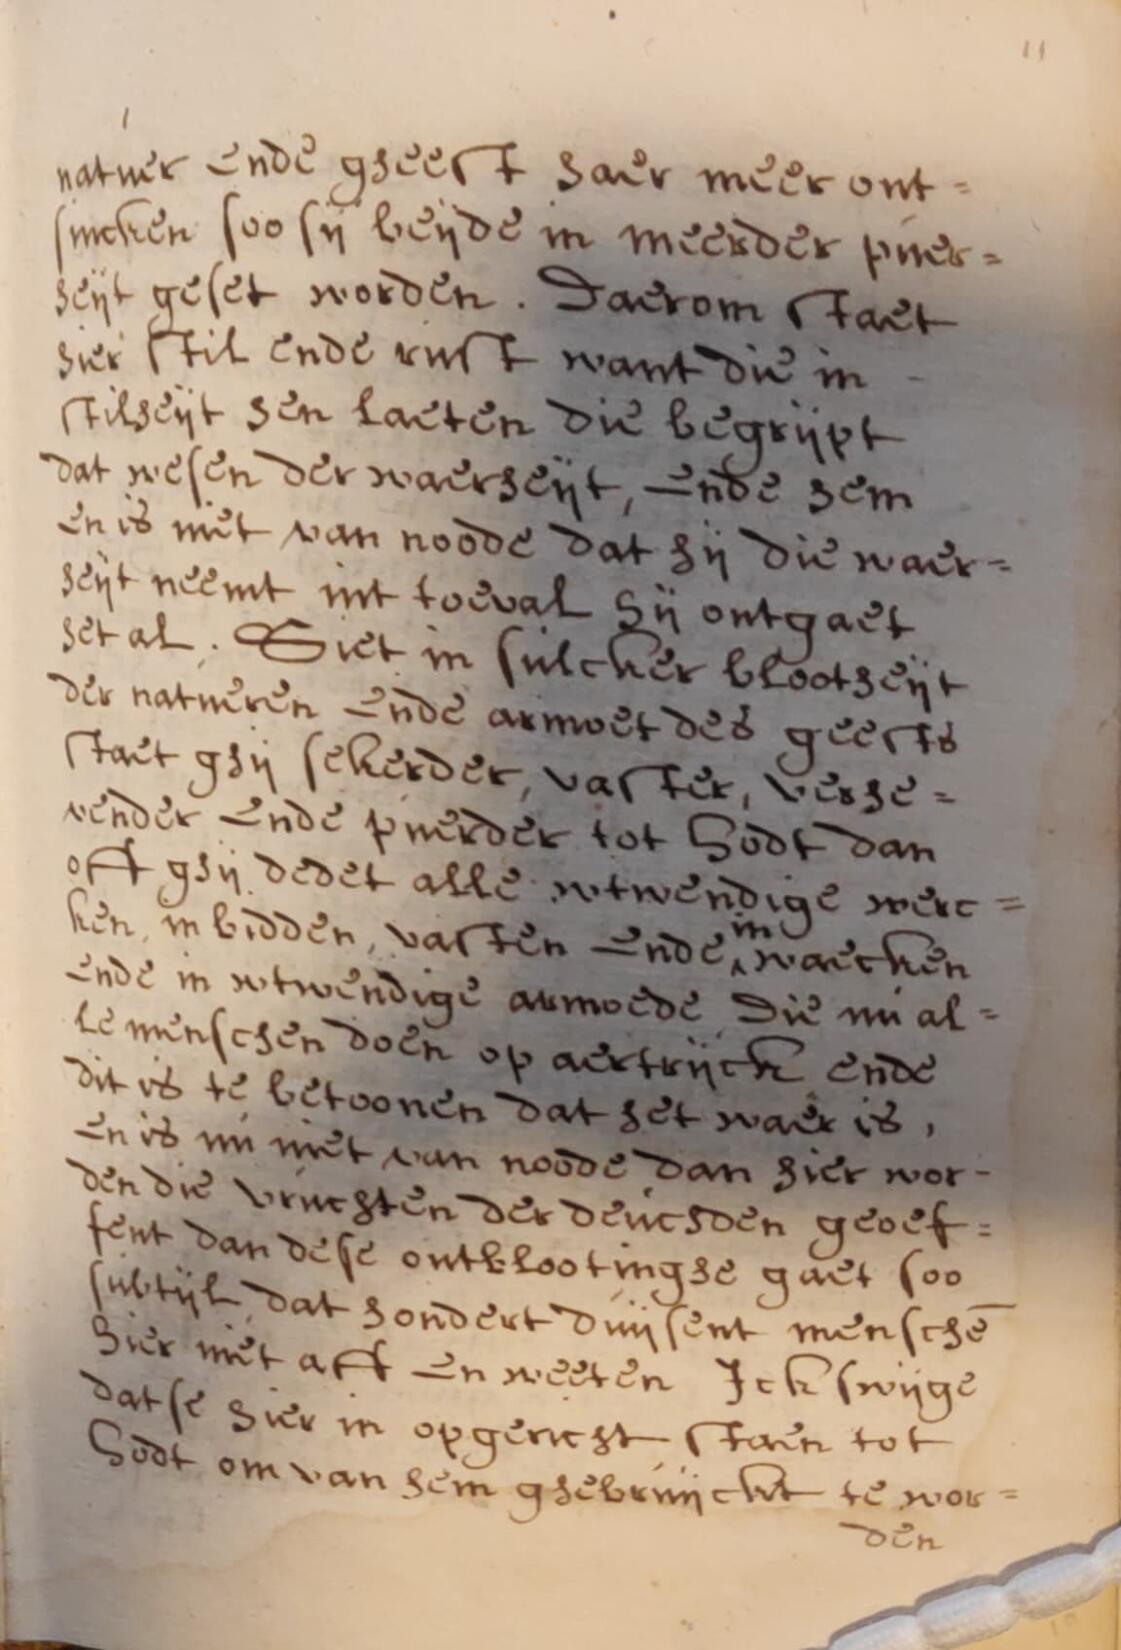 11
natuer ende gheest haer meer ont=
sincken soo sij beijde in meerder puer=
heijt geset worden. Daerom staet
hier stil ende rust want die in
stilheijt hen laeten die begrijpt
dat wesen der waerheijt, ende hem
en is niet van noode dat hij die waer=
heijt neemt int toeval hij ontgaet
het al. Siet in sulcker blootheijt
der natueren ende armoet des geests
staet ghij sekerder, vaster, verhe=
vender ende puerder tot Godt dan
oft ghij dedet alle wtwendige werc=
ken, in bidden, vasten ende in waecken
ende in wtwendige armoede Die nu al=
le menschen doen op aertrijck ende
dit is te betoonen dat het waer is,
en is nu niet van noode dan hier wor-
den die vruchten der deuchden geoef=
fent dan dese ontblootinghe gaet soo
subtijl dat hondert duijsent menschē
hier niet aff en weeten Ick swijge
datse hier in opgericht staen tot
Godt om van hem ghebruijckt te wor=
den